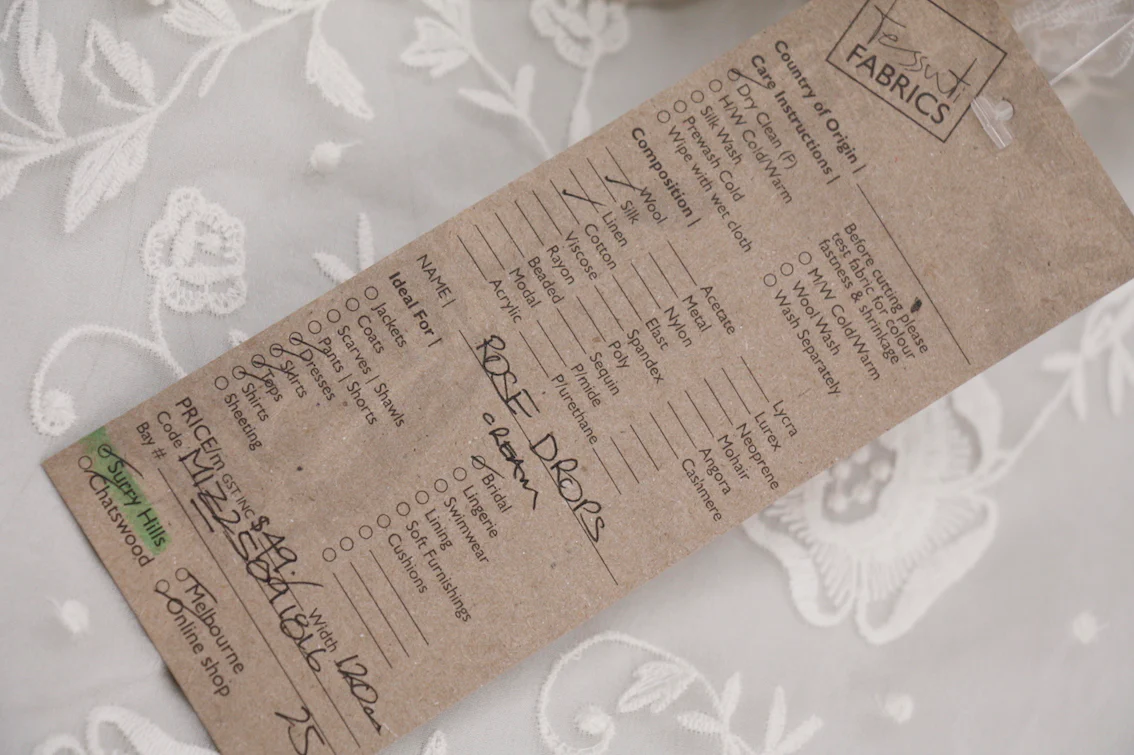 Tessuti
FABRICS
Country of Origin |
Care Instructions |
Dry Clean (F)
H/W Cold/Warm
Silk Wash
Prewash Cold
Wipe with wet cloth
Before cutting please
test fabric for colour
fastness & shrinkage
M/W Cold/Warm
Wool Wash
Wash Separately
Composition |
Wool
Silk
Linen
Cotton
Viscose
Rayon
Beaded
Modal
Acrylic
Acetate
Metal
Nylon
Elast
Spandex
Poly
Sequin
P/mide
P/urethane
Lycra
Lurex
Neoprene
Mohair
Angora
Cashmere
NAME | ROSE DROPS
CREAM
Ideal For |
Jackets
Coats
Scarves | Shawls
Pants | Shorts
Dresses
Skirts
Tops
Shirts
Sheeting
Bridal
Lingerie
Swimwear
Lining
Soft Furnishings
Cushions
PRICE/m GST INC $49.
Width 120
Code
Bay # 25
Surry Hills
Chatswood
Melbourne
Online shop